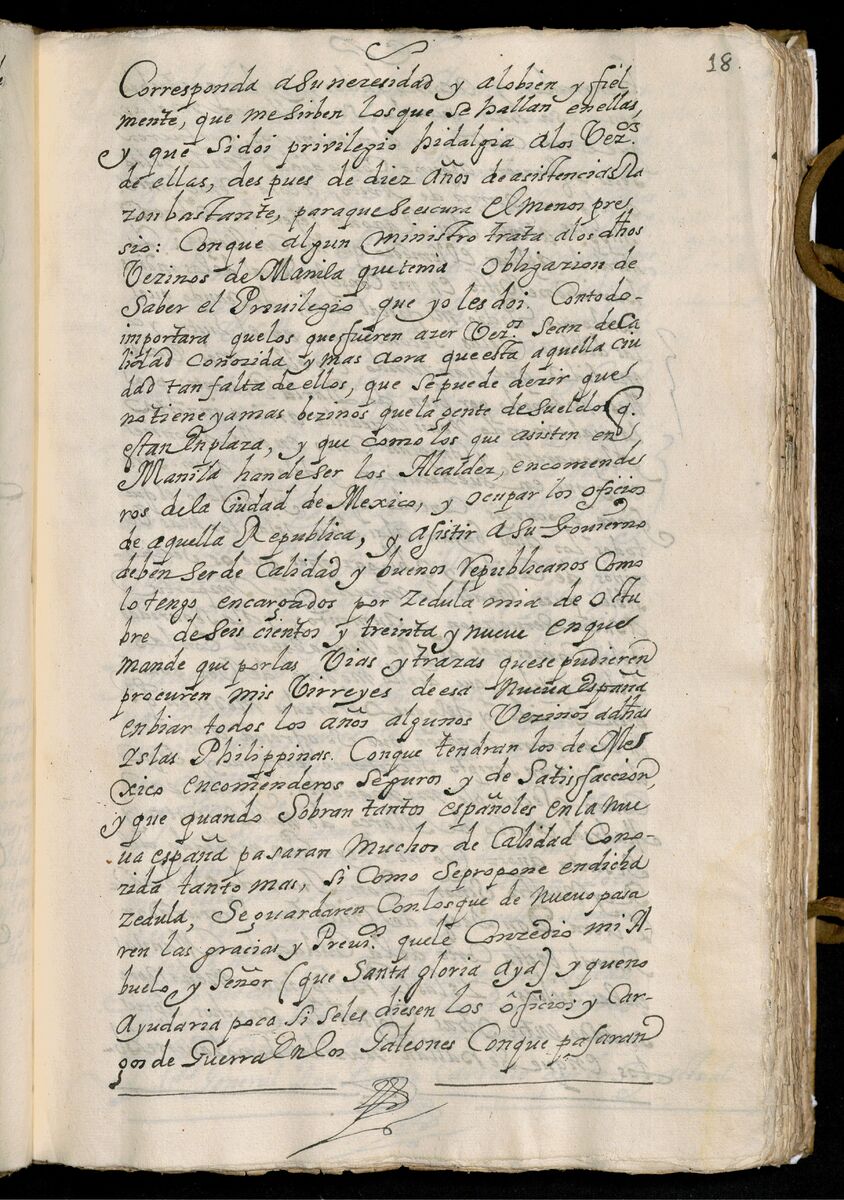 18.
Corresponda asunezesidad y alobien y fiel
mente, que mesirben losque se hallan enellas,
y que sidoi privilegio hidalgia alos Vezos.
de ellas, des pues de diez años de asistencias Ra
zon bastante, paraque seescura el menos pres
sio: Conque algun ministro trata alos dhos
Vezinos de Manila quetenia obligazion de
saber el Previlegio que yo les doi. Contodo-
importara quelos quefueren azer Vezos. sean de Ca
lidad Conozida y mas aora queesta aquella Ciu
dad tan falta de ellos, que sepuede dezir que
no tiene yamas bezinos quela gente de sueldo q.
estan en plaza, y que como los que asisten en
Manila hande ser los Alcaldez, encomende
ros de la Ciudad de Mexico, y ocupar los oficios
de aquella Republica, y asistir a su Govierno
deben ser de Calidad y buenos republicanos Como
lo tengo encargados por Zedula mia de Octu
bre de seis cientos y treinta y nueve en que
mande que por las Vias y trazas quese pudieren
procuren mis Virreyes de esa Nueua España
enbiar todos los años algunos Vezinos adhas
Yslas Philippinas. Conque tendran los de Me
xico encomenderos seguros y de satisfaccion,
y que quando sobran tantos españoles en la nue
ua españa pasaran muchos de Calidad Cono-
zida tanto mas, si como sepropone en dicha
zedula, se guardaren con los que de nuevo pasa
ren las gracias y Previos. quele Conzedio mi A-
buelo y Señor (que Santa gloria aya) y queno
Ayudaria poco si seles diesen los oficios y Car-
gos de Guerra en los Galeones Conque pasaran